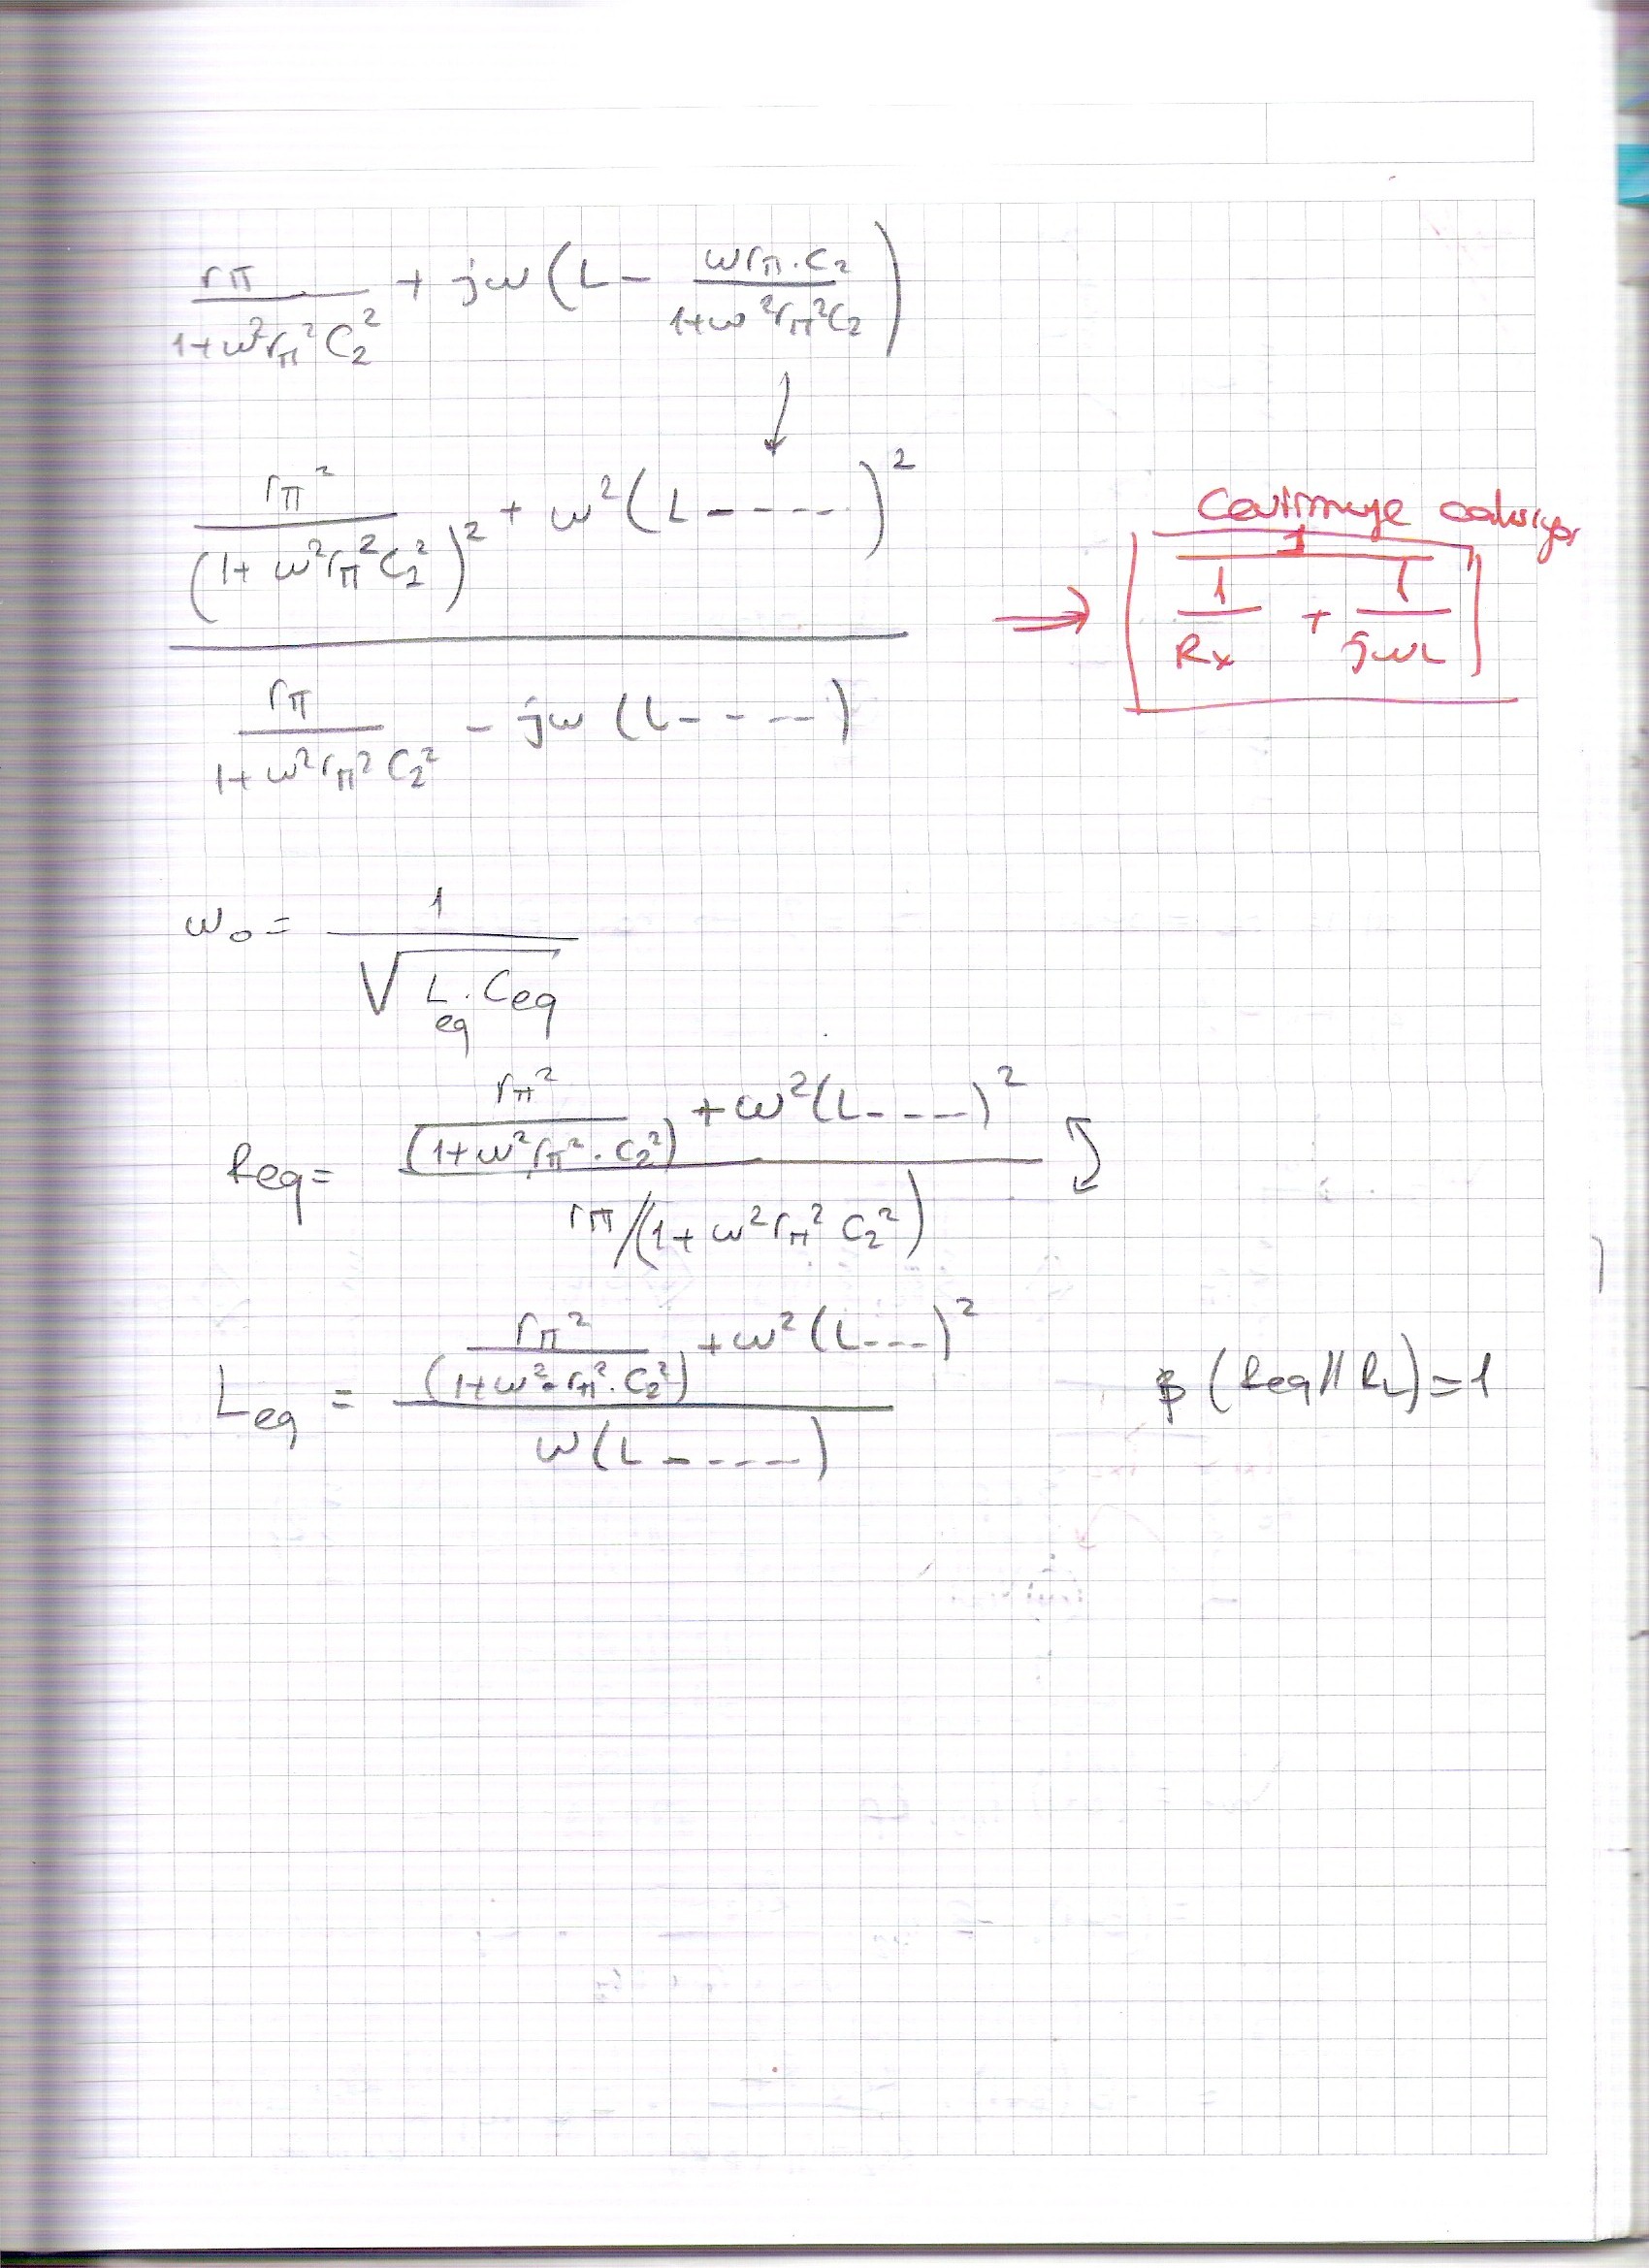 rπ / (1+ω²rπ²C₂²) + jω(L − ωrπ.C₂ / (1+ω²rπ²C₂))
↓
rπ² / (1+ω²rπ²C₂²)² + ω²(L - - - - -)²
rπ / (1+ω²rπ²C₂²) − jω(L - - - -)
⇒ [1 / (1/Rx + 1/jωL)]
ω₀ = 1 / √(Leq.Ceq)
Req = (rπ² / (1+ω²rπ².C₂²) + ω²(L - - - -)²) / (rπ/(1+ω²rπ²C₂²))
Leq = (rπ² / (1+ω².rπ².C₂²) + ω²(L - - -)²) / (ω(L - - - - -))
β(Req//RL)=1